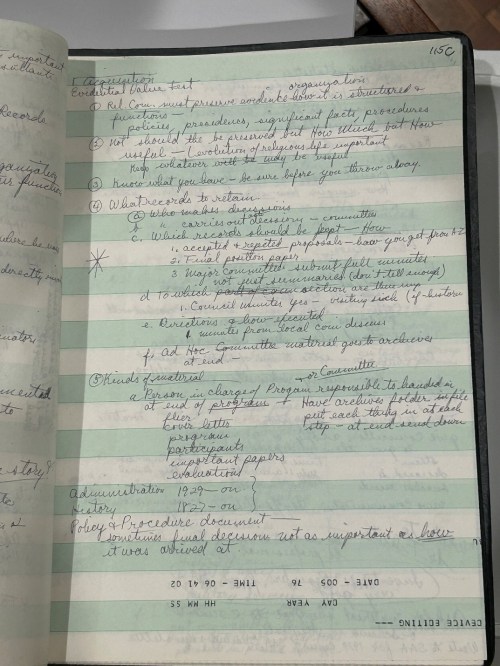 115C
I Acquisition
Evidential Value test
organization
① Rel Com. must preserve evidence how it is structured &
functions —
policies, precedences, significant facts, procedures
② Not should the be preserved but How Much but How
useful — (evolution of religious life important
Keep whatever will be may be useful
③ Know what you have — be sure before you throw away
④ What records to retain
a Who makes decisions
b " carries out decisions — committee
c. Which records should be kept — How
1. accepted & rejected proposals — how you get from 1-2
2. Final position paper
3. Major Committees submit full minutes
not just summaries (don't tell enough)
d To which section are they
1. Council minutes yes — visiting such (if historic
e. Directions & how executed
minutes from local com discuss
f. Ad Hoc Committee material goes to archives
at end —
⑤ Kinds of material
or Committee
a Person in charge of Program responsible to handed in
at end of program
Have archives folder in file
flier
put each thing in at each
cover letter
step — at end send down
program
participants
important papers
evaluations
Administration 1929 — on
History 1827 — on
Policy & Procedure document —
sometimes final decision not as important as how
it was arrived at.
DATE - 005 76 TIME - 06 41 02
DAY YEAR HH MM SS
DEVICE EDITING ---
important
Records
function
directly
story?
to